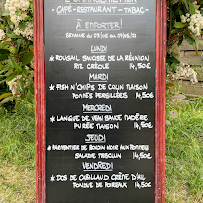 - CAFÉ - RESTAURANT - TABAC -
À EMPORTER!
SEMAINE DU 03/05 AU 07/05/21
LUNDI
* ROUGAIL SAUCISSE DE LA RÉUNION
RIZ CRÉOLE 14,50€
MARDI
* FISH N'CHIPS DE COLIN MAISON
POMMES PERSILLÉES 14,50€
MERCREDI
* LANGUE DE VEAU SAUCE MADÈRE
PURÉE MAISON 14,50€
JEUDI
* PARMENTIER DE BOUDIN NOIR AUX POMMES
SALADE MESCLUN 14,50€
VENDREDI
* DOS DE CABILLAUD CRÈME D'AIL
FONDUE DE POIREAUX 14,50€